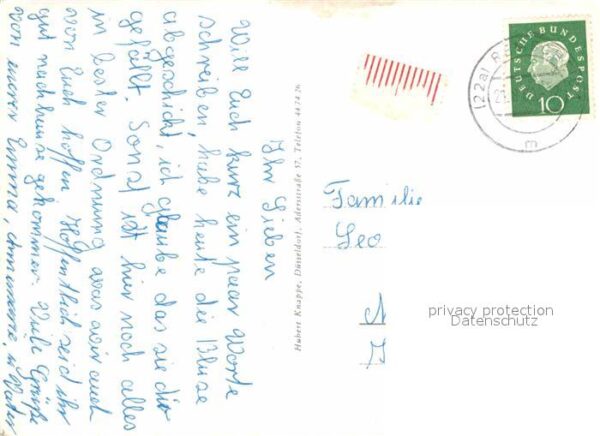 Ihr Lieben
Will Euch kurz ein paar Worte
schreiben, habe heute die Bluse
abgeschickt, ich glaube das sie dir
gefällt. Sonst ist hier noch alles
in bester Ordnung was wir auch
von Euch hoffen. Hoffentlich seid ihr
gut nachhause gekommen. Viele Grüße
von Emma, Annemarie, u. Vater
Hubert Knappe, Düsseldorf, Adersstraße 57, Telefon 44 74 26
DEUTSCHE BUNDESPOST
10
(22a)
m
Familie
Leo
privacy protection
Datenschutz